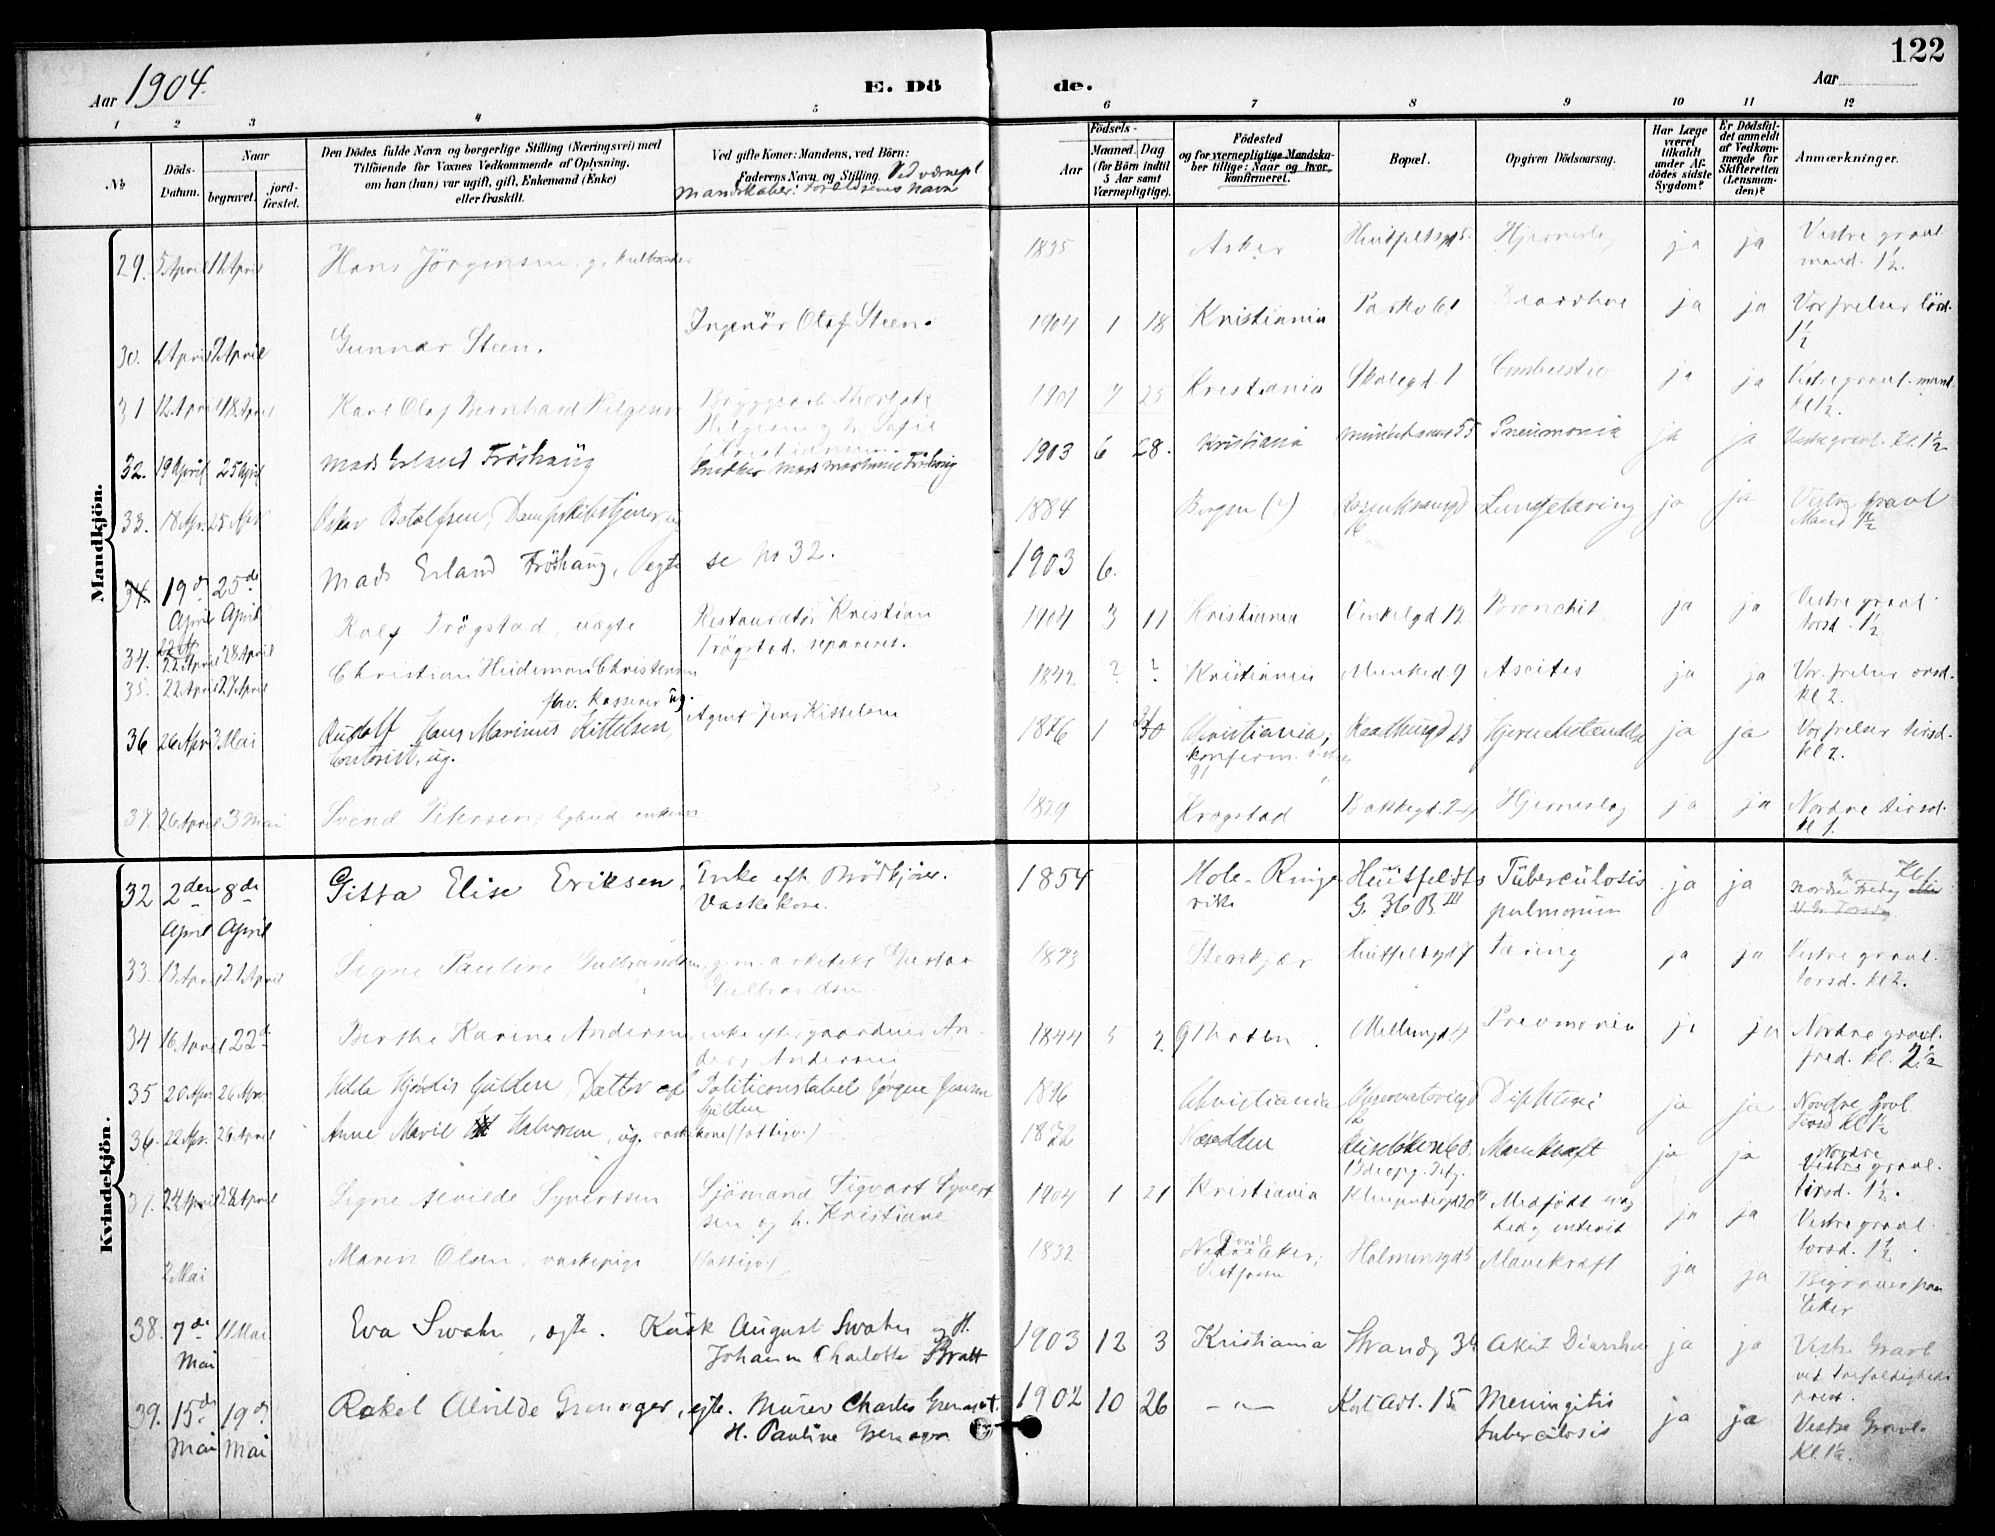 122
Aar 1904.
E. Dö de.
Aar
1 2 3 4 5 6 7 8 9 10 11 12
No
Döds-Datum.
Naar
begravet.
jord-fæstet.
Den Dödes fulde Navn og borgerlige Stilling (Næringsvei) med
Tilföiende for Voxnes Vedkommende af Oplysning,
om han (hun) var ugift, gift, Enkemand (Enke)
eller fraskilt.
Ved gifte Koner: Mandens, ved Börn:
Faderens Navn og Stilling. Ved værnepl.
Mandskaber: Forældrenes Navn
Födsels-
Aar
Maaned (for Börn indtil 5 Aar samt Værnepligtige).
Dag
Födested
og for værnepligtige Mandska-
ber tillige: Naar og hvor
konfirmeret.
Bopæl.
Opgiven Dödsaarsag.
Har Læge været tilkaldt under Af-dödes sidste Sygdom?
Er Dödsfal-det anmeldt af Vedkom-mende for Skifteretten (Lensman-den)?
Anmærkninger.
Mandkjön.
29. 5 April 11 April Hans Jörgensen, g. 1835 Asker Huitfeldtsgd 5. Hjerneslag ja ja Vestre gravl.
mand. 1½.
30. 1 April 7 April Gunnar Steen. Ingeniör Olaf Steen. 1904 1 18 Kristiania Parkv 61 Diarrhoe ja ja Vor frelser lörd.
1½
31 12 April 18 April Karl Olaf Bernhard Helgesen Thorleif
Helgesen g. h. Sofie
Kristiansen 1901 7 23 Kristiania Skolegd. 1 Combustio ja ja Vestre gravl. mand.
kl 1½.
32. 19 April 25 April Mads Erland Fröshaug Snedker Mads Martinius Fröshaug 1903 6 28. Kristiania Munkedamsv 55 Pneumonia ja ja Vestre gravl. Kl. 1½
33. 18 Apr. 25 Apr. Oskar Botolfsen, Dampskibstjener, ug 1884 Bergen (?) Rosenkransgd
16 Lungetæring ja ja Vestre Gravl
Mand 1½
34. 19de April 25de April Mads Erland Fröshaug, ægte se No 32. 1903 6.
34. 22 April 28 April Rolf Trögstad, uægte Restauratör Kristian
Trögstad, separeret. 1904 3 11 Kristiania Vinkelgd 12 Bronchit ja ja Vestre gravl.
torsd. 1½
35. 22 April 27 April Christian Heideman Christensen
fhv. Kasserer ug. 1842 ? ? Kristiania Munked 9 Ascites ja ja Vor frelser onsd.
kl 2.
36 26 Apr 3 Mai Rudolf Hans Marinus Kittelsen,
Contorist, ug. Agent Jens Kittelsen 1876 1 30 Christiania,
konfirm.
91 Raadhusgd 23 ja ja Vor frelser tirsd.
kl 2.
37. 26 April 3 Mai Svend Petersen, bybud, enkem 1829 Krogstad Bakkegd. 2-4 Hjerneslag ja ja Nordre tirsd.
kl 1.
Kvindekjön.
32 2den April 8de April Gitta Elise Eriksen, Enke efth. Brödkjörer.
Vaskekone. 1854 Hole - Ringe-
rike Heuitfeldts
G. 36 B III Tuberculosis
pulmonum ja ja Nordre Gr. Fredag Kl 1.
33. 13 April 21 April Signe Pauline Gulbrandsen g. m. arkitekt Gustav
Gulbrandsen. 1873 Stenkjær Huitfeldtsgd 7 Tæring ja ja Vestre gravl.
torsd. kl 2.
34 16 April 22de Berthe Karine Andersen, enke efter gaardeier An-
ders Andersen 1844 5 2. Thoten. Mellemgd. 4 Pneumonia ja ja Nordre gravl.
fred. kl. 2½
35 20 Apr. 26 Apr. Hilda Hjördis Gulden, Datter af Politiconstabel Jörgen Jensen
Gulden 1896 Christiania Observatoriegd
12 Difteri ja ja Nordre Gravl
Tirsd Kl 1½
36. 22 Apr. 26 April Anne Marie Halvorsen, ug. vaskekone (fattigv.) 1832 Næsodden Ruselökv 60.
B opg. 2 Etg. Mavekræft ja ja Nordre
37. 24 April 28 April Signe Alvilde Syvertsen Sjömand Sigvart Syvert
sen og h. Kristiane 1904 1 21 Kristiania Klingenberggd 20 Medfödt svag
hed og enterit ja ja Vestre gravl.
tirsd. 1½.
Vestre gravl.
torsd. 1½.
2 Mai Maren Olsen, vaskepige (fattigv.) 1832 Nedre Eker, Holmensgd 5 Mavekræft ja ja Begraves paa
Eker
38. 7de Mai 11 Mai Eva Swahn, ægte. Kusk August Swahn og H.
Johanne Charlotte Bratt 1903 12 3 Kristiania Strandg 34 Akut Diarrhee ja ja Vestre Gravl
ved trefoldigheds
prest.
39. 15de Mai 19de Mai Rakel Alvilde Grenager, ægte. Murer Charles Grenager.
H. Pauline Grenager 1902 10 26 — " — Karl Adt. 15 Meningitis
tuberculosis ja ja Vestre Gravl.
Kl 1½.